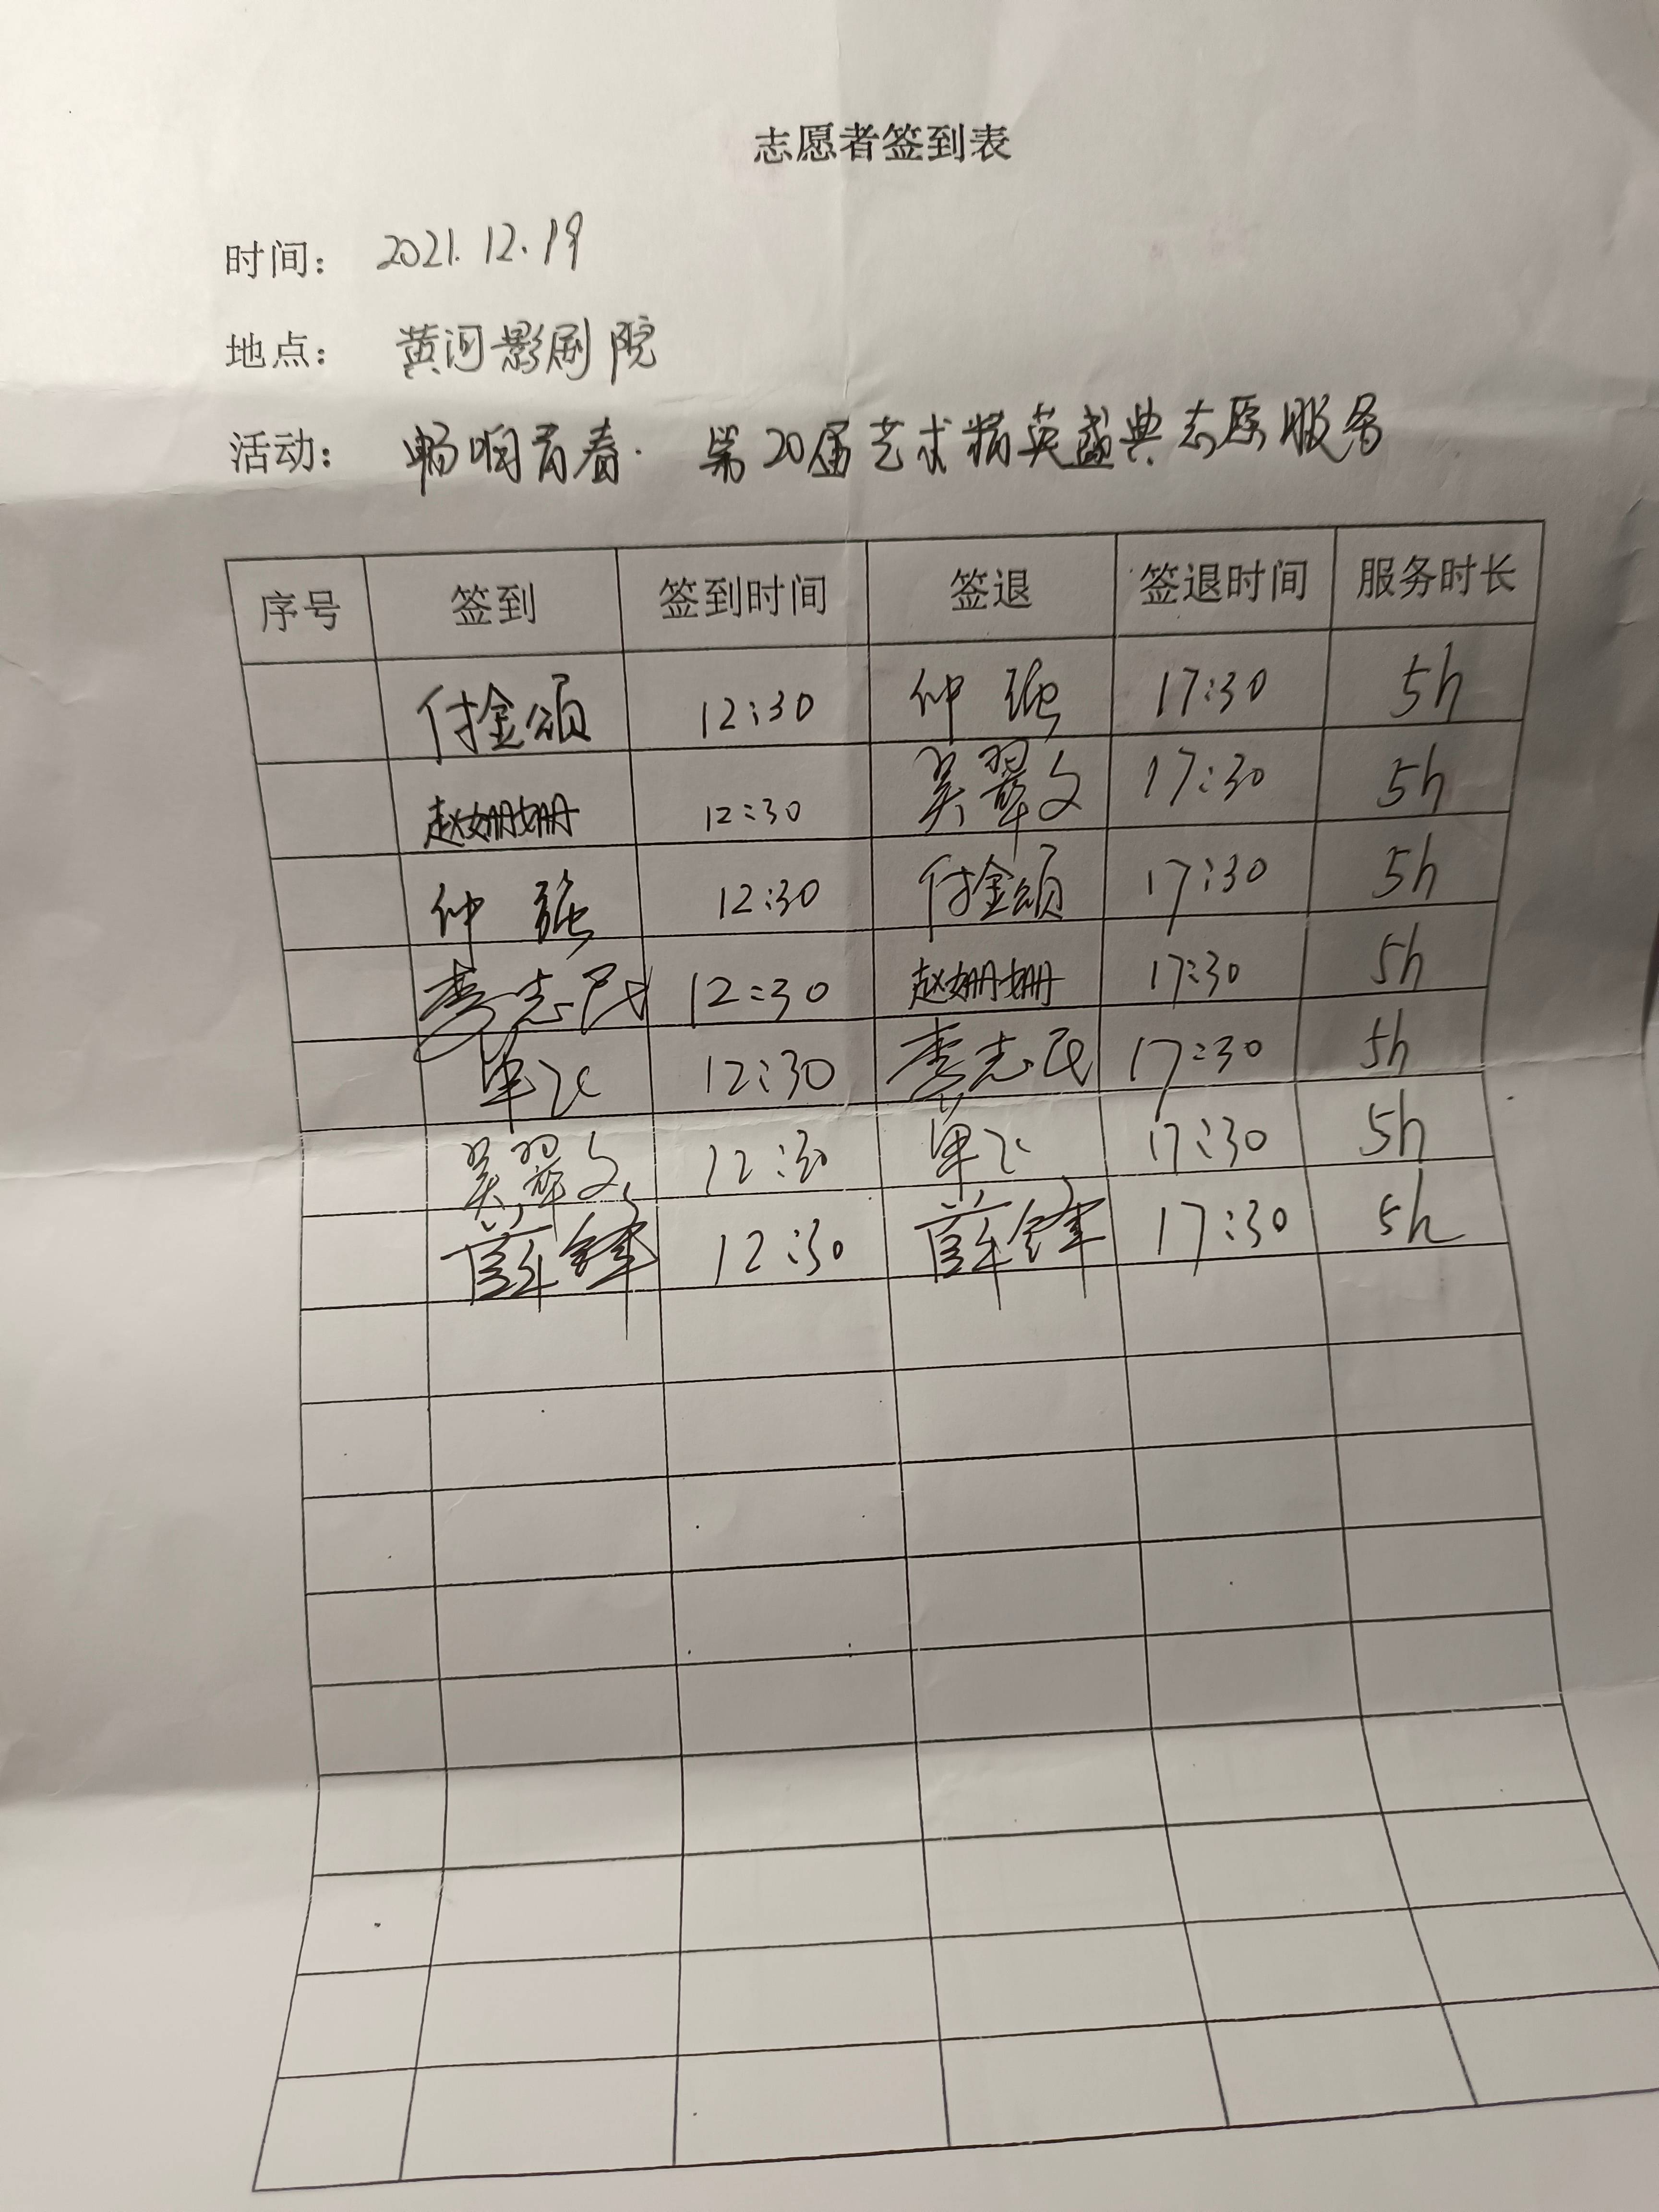 志愿者签到表
时间： 2021.12.19
地点： 黄河影剧院
活动： 畅响青春· 第20届艺术精英盛典志愿服务
序号 签到 签到时间 签退 签退时间 服务时长
付金颂 12:30 仲强 17:30 5h
赵姗姗 12:30 吴翠文 17:30 5h
仲强 12:30 付金颂 17:30 5h
李志民 12:30 赵姗姗 17:30 5h
单 12:30 李志民 17:30 5h
吴翠文 12:30 单 17:30 5h
薛锋 12:30 薛锋 17:30 5h